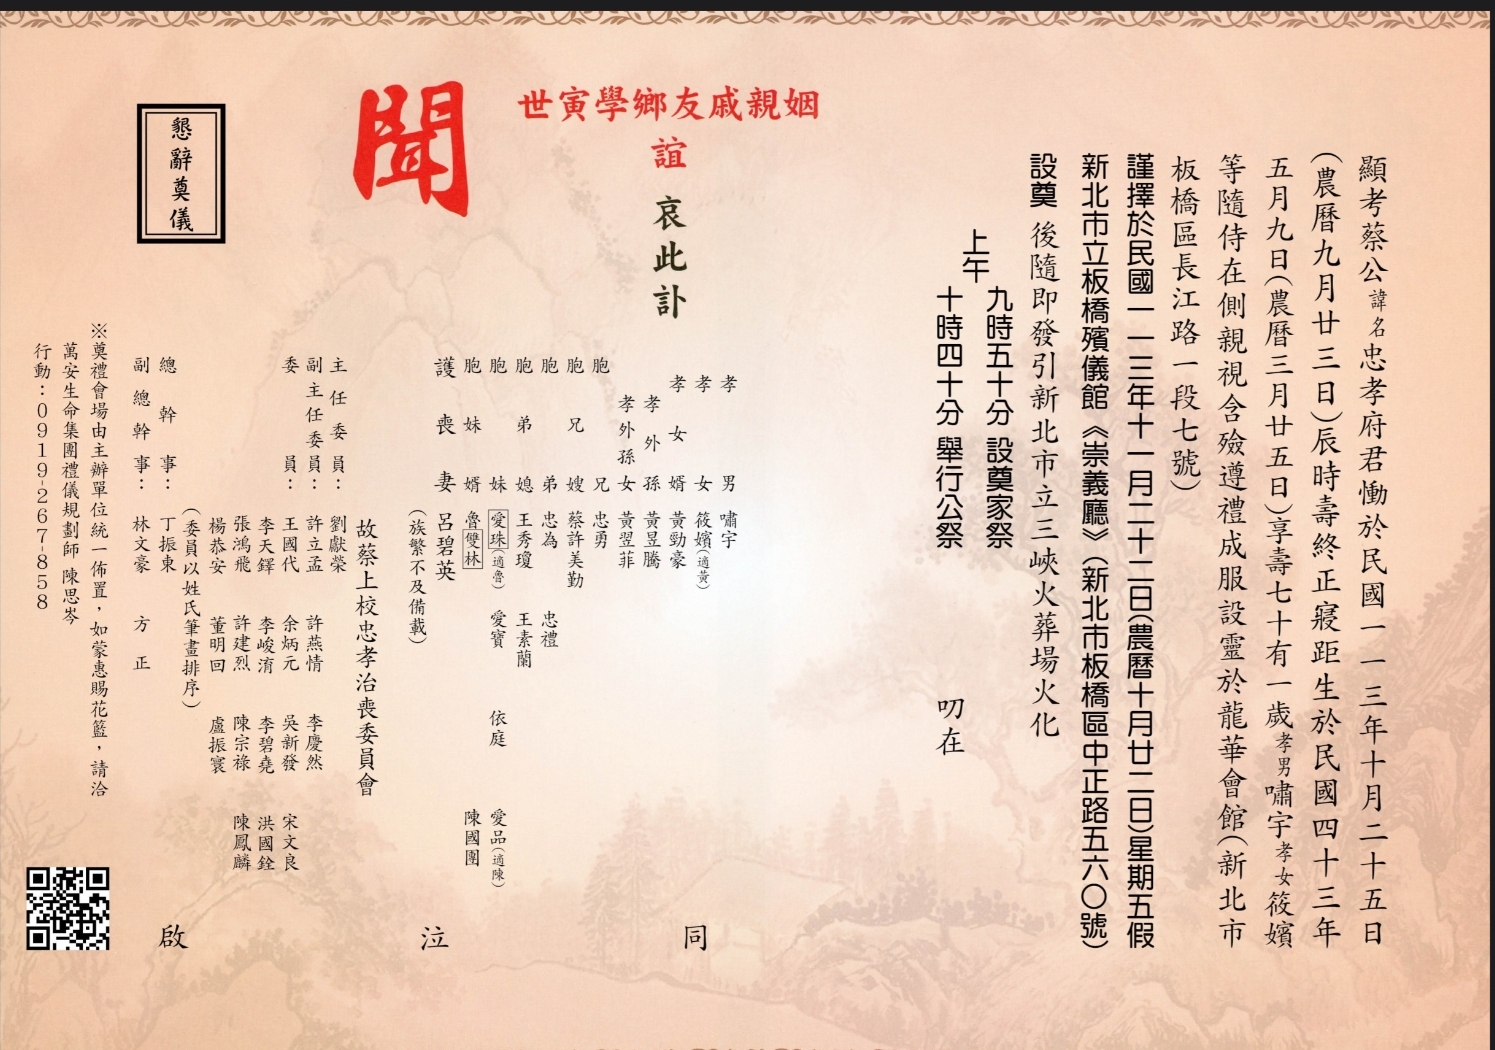 顯考蔡公諱名忠孝府君慟於民國一一三年十月二十五日
(農曆九月廿三日)辰時壽終正寢距生於民國四十三年
五月九日(農曆三月廿五日)享壽七十有一歲孝男嘯宇孝女筱嬪
等隨侍在側親視含殮遵禮成服設靈於龍華會館(新北市
板橋區長江路一段七號)
謹擇於民國一一三年十一月二十二日(農曆十月廿二日)星期五假
新北市立板橋殯儀館《崇義廳》(新北市板橋區中正路五六〇號)
設奠 後隨即發引新北市立三峽火葬場火化
上午
九時五十分 設奠家祭
十時四十分 舉行公祭
叨在
姻親戚友鄉學寅世
誼
哀此訃
聞
孝男 嘯宇
孝女 筱嬪(適黃)
孝女婿 黃勁豪
孝外孫 黃昱騰
孝外孫女 黃翌菲
胞兄 忠勇
胞兄嫂 蔡許美勤
胞弟 忠為 忠禮
胞弟媳 王秀瓊 王素蘭
胞妹 愛珠(適魯) 愛寶 依庭 愛品(適陳)
胞妹婿 魯雙林 陳國團
護喪妻 呂碧英
(族繁不及備載)
同
泣
啟
故蔡上校忠孝治喪委員會
主任委員: 劉獻榮
副主任委員: 許立孟 許燕情 李慶然
委員: 王國代 余炳元 吳新發 宋文良
李天鐸 李峻淯 李碧堯 洪國銓
張鴻飛 許建烈 陳宗祿 陳鳳麟
楊恭安 董明回 盧振寰
(委員以姓氏筆畫排序)
總幹事: 丁振東
副總幹事: 林文豪 方正
懇辭奠儀
※奠禮會場由主辦單位統一佈置,如蒙惠賜花籃,請洽
萬安生命集團禮儀規劃師 陳思岑
行動:0919-267-858